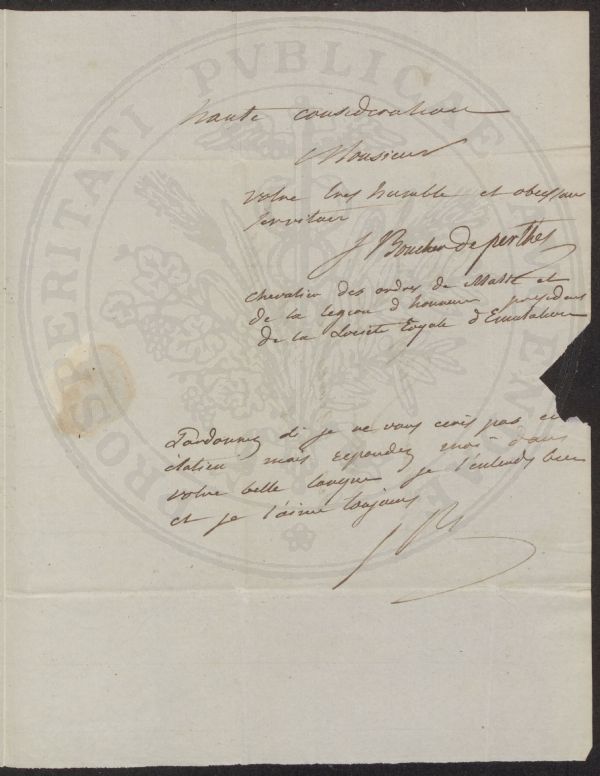 PROSPERITATI PVBLICAE
haute consideration
Monsieur
votre tres humble et obeissant
serviteur
J Boucher de perthes
chevalier des ordres de Malte et
de la legion d honneur president
de la Société Royale d'Emulation
Pardonnez si je ne vous ecris pas en
italien mais repondez moi dans
votre belle langue je l'entends bien
et je l'aime toujours